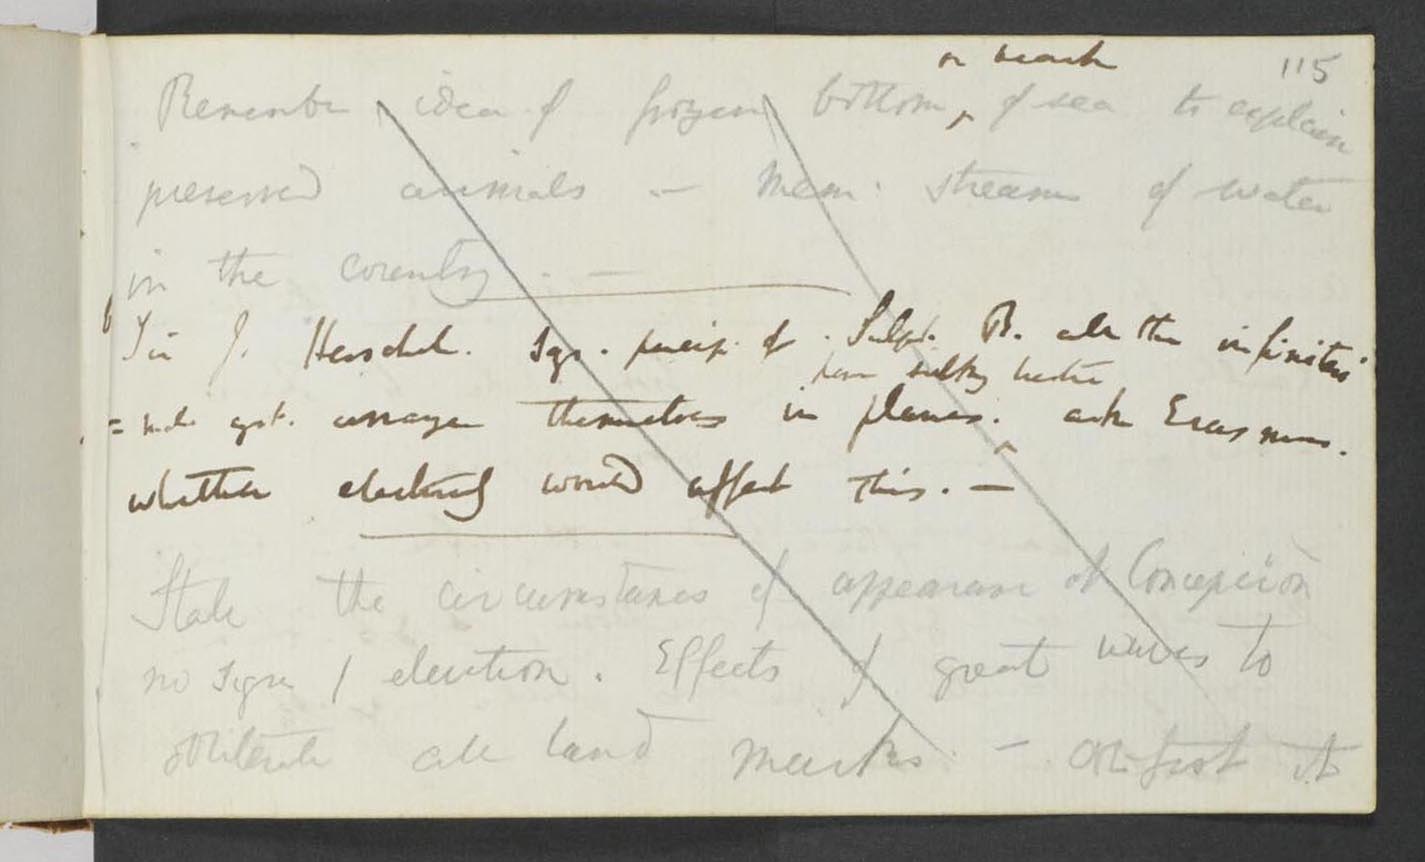 or beach 115
Remember idea of frozen bottom of sea to explain
preserved animals — Mem: streams of water
in the country. —
Sir J. Herschel. says. precip. of. Sulph. B. all the infinitesi
= mal cryst. arrange themselves in planes. ask Erasmus.
silky lustre
whether electricity would affect this. —
State the circumstances of appearance at Concepcion
no signs / elevation. Effects of great waves to
obliterate all land marks — At first it